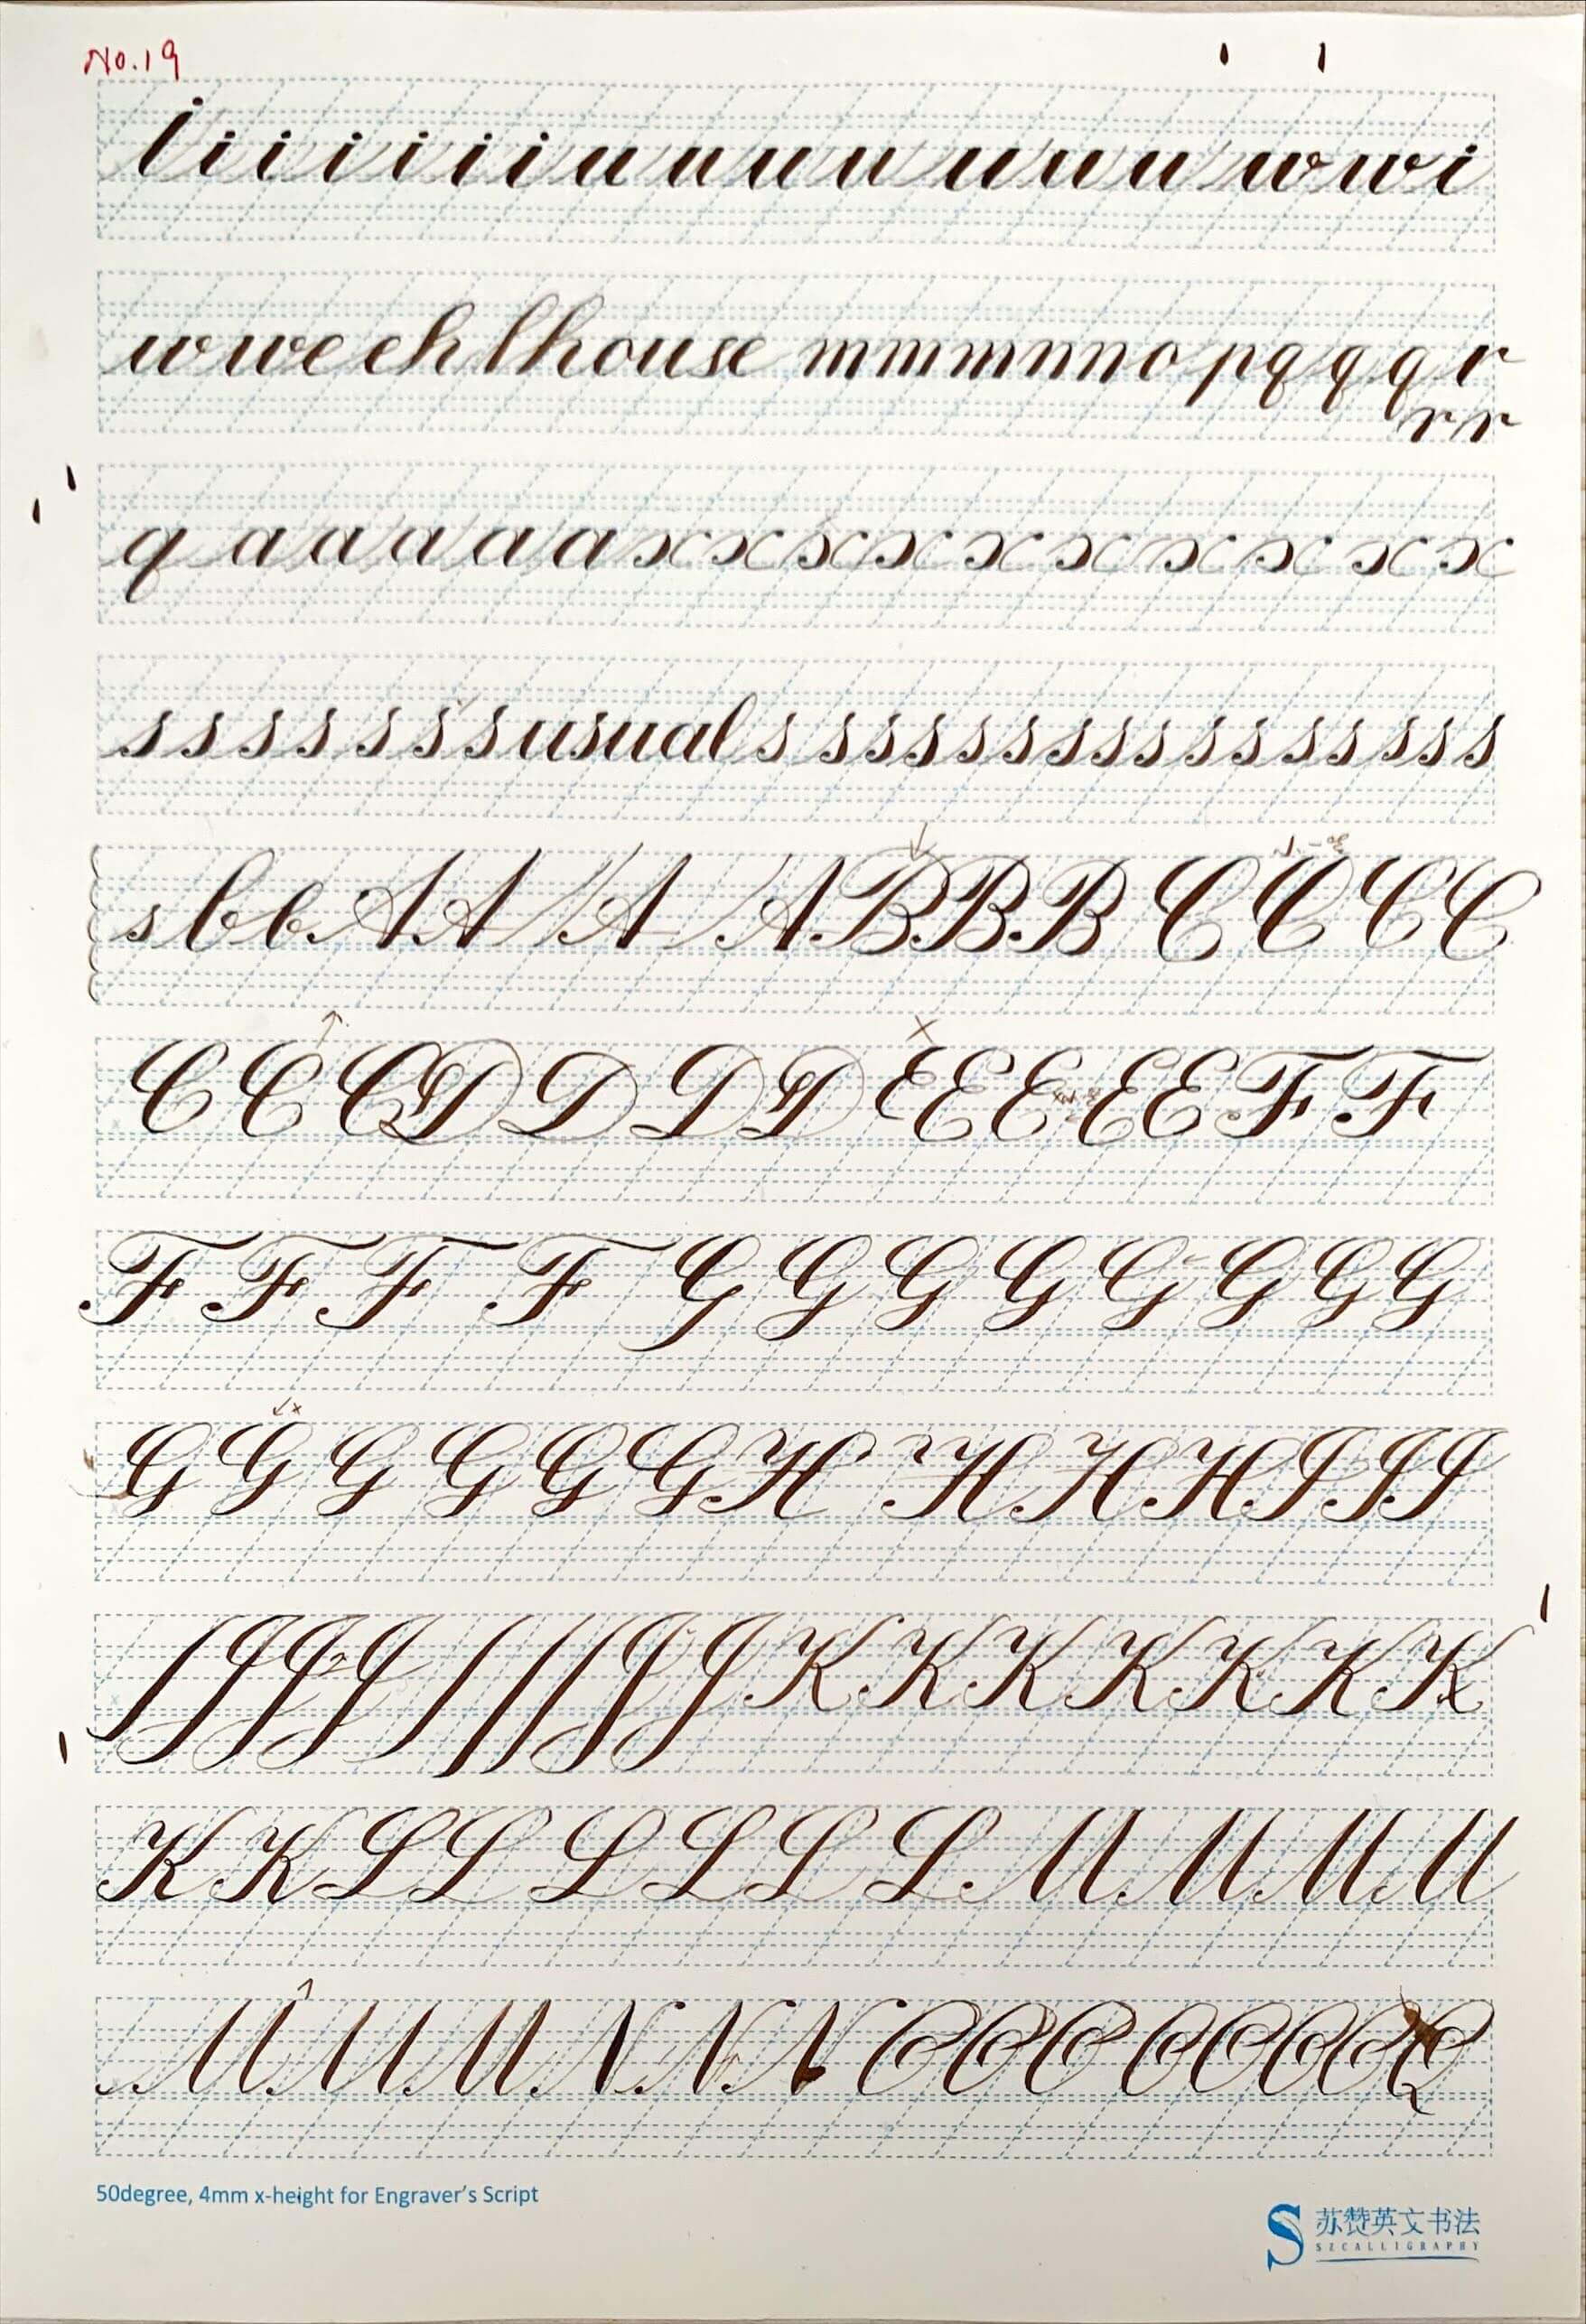 No.19
l i i i i i i u u u u u u u w w i
w w e e h l h o u s e m m m n n n o p q q q r
r r
q a a a a a x x x x x x x x x x
s s s s s s s usual s s s s s s s s s s s s s s s s s
s b b A A A A B B B C C C C
C C C D D D D E E E E E F F
F F F F G G G G G G G G
G G G G G G H H H H I I I
J J J K K K K K K K
K K L L L L L L M M M M
M M M N N N O O O O O O O Q
50degree, 4mm x-height for Engraver's Script
苏赞英文书法
SZCALLIGRAPHY